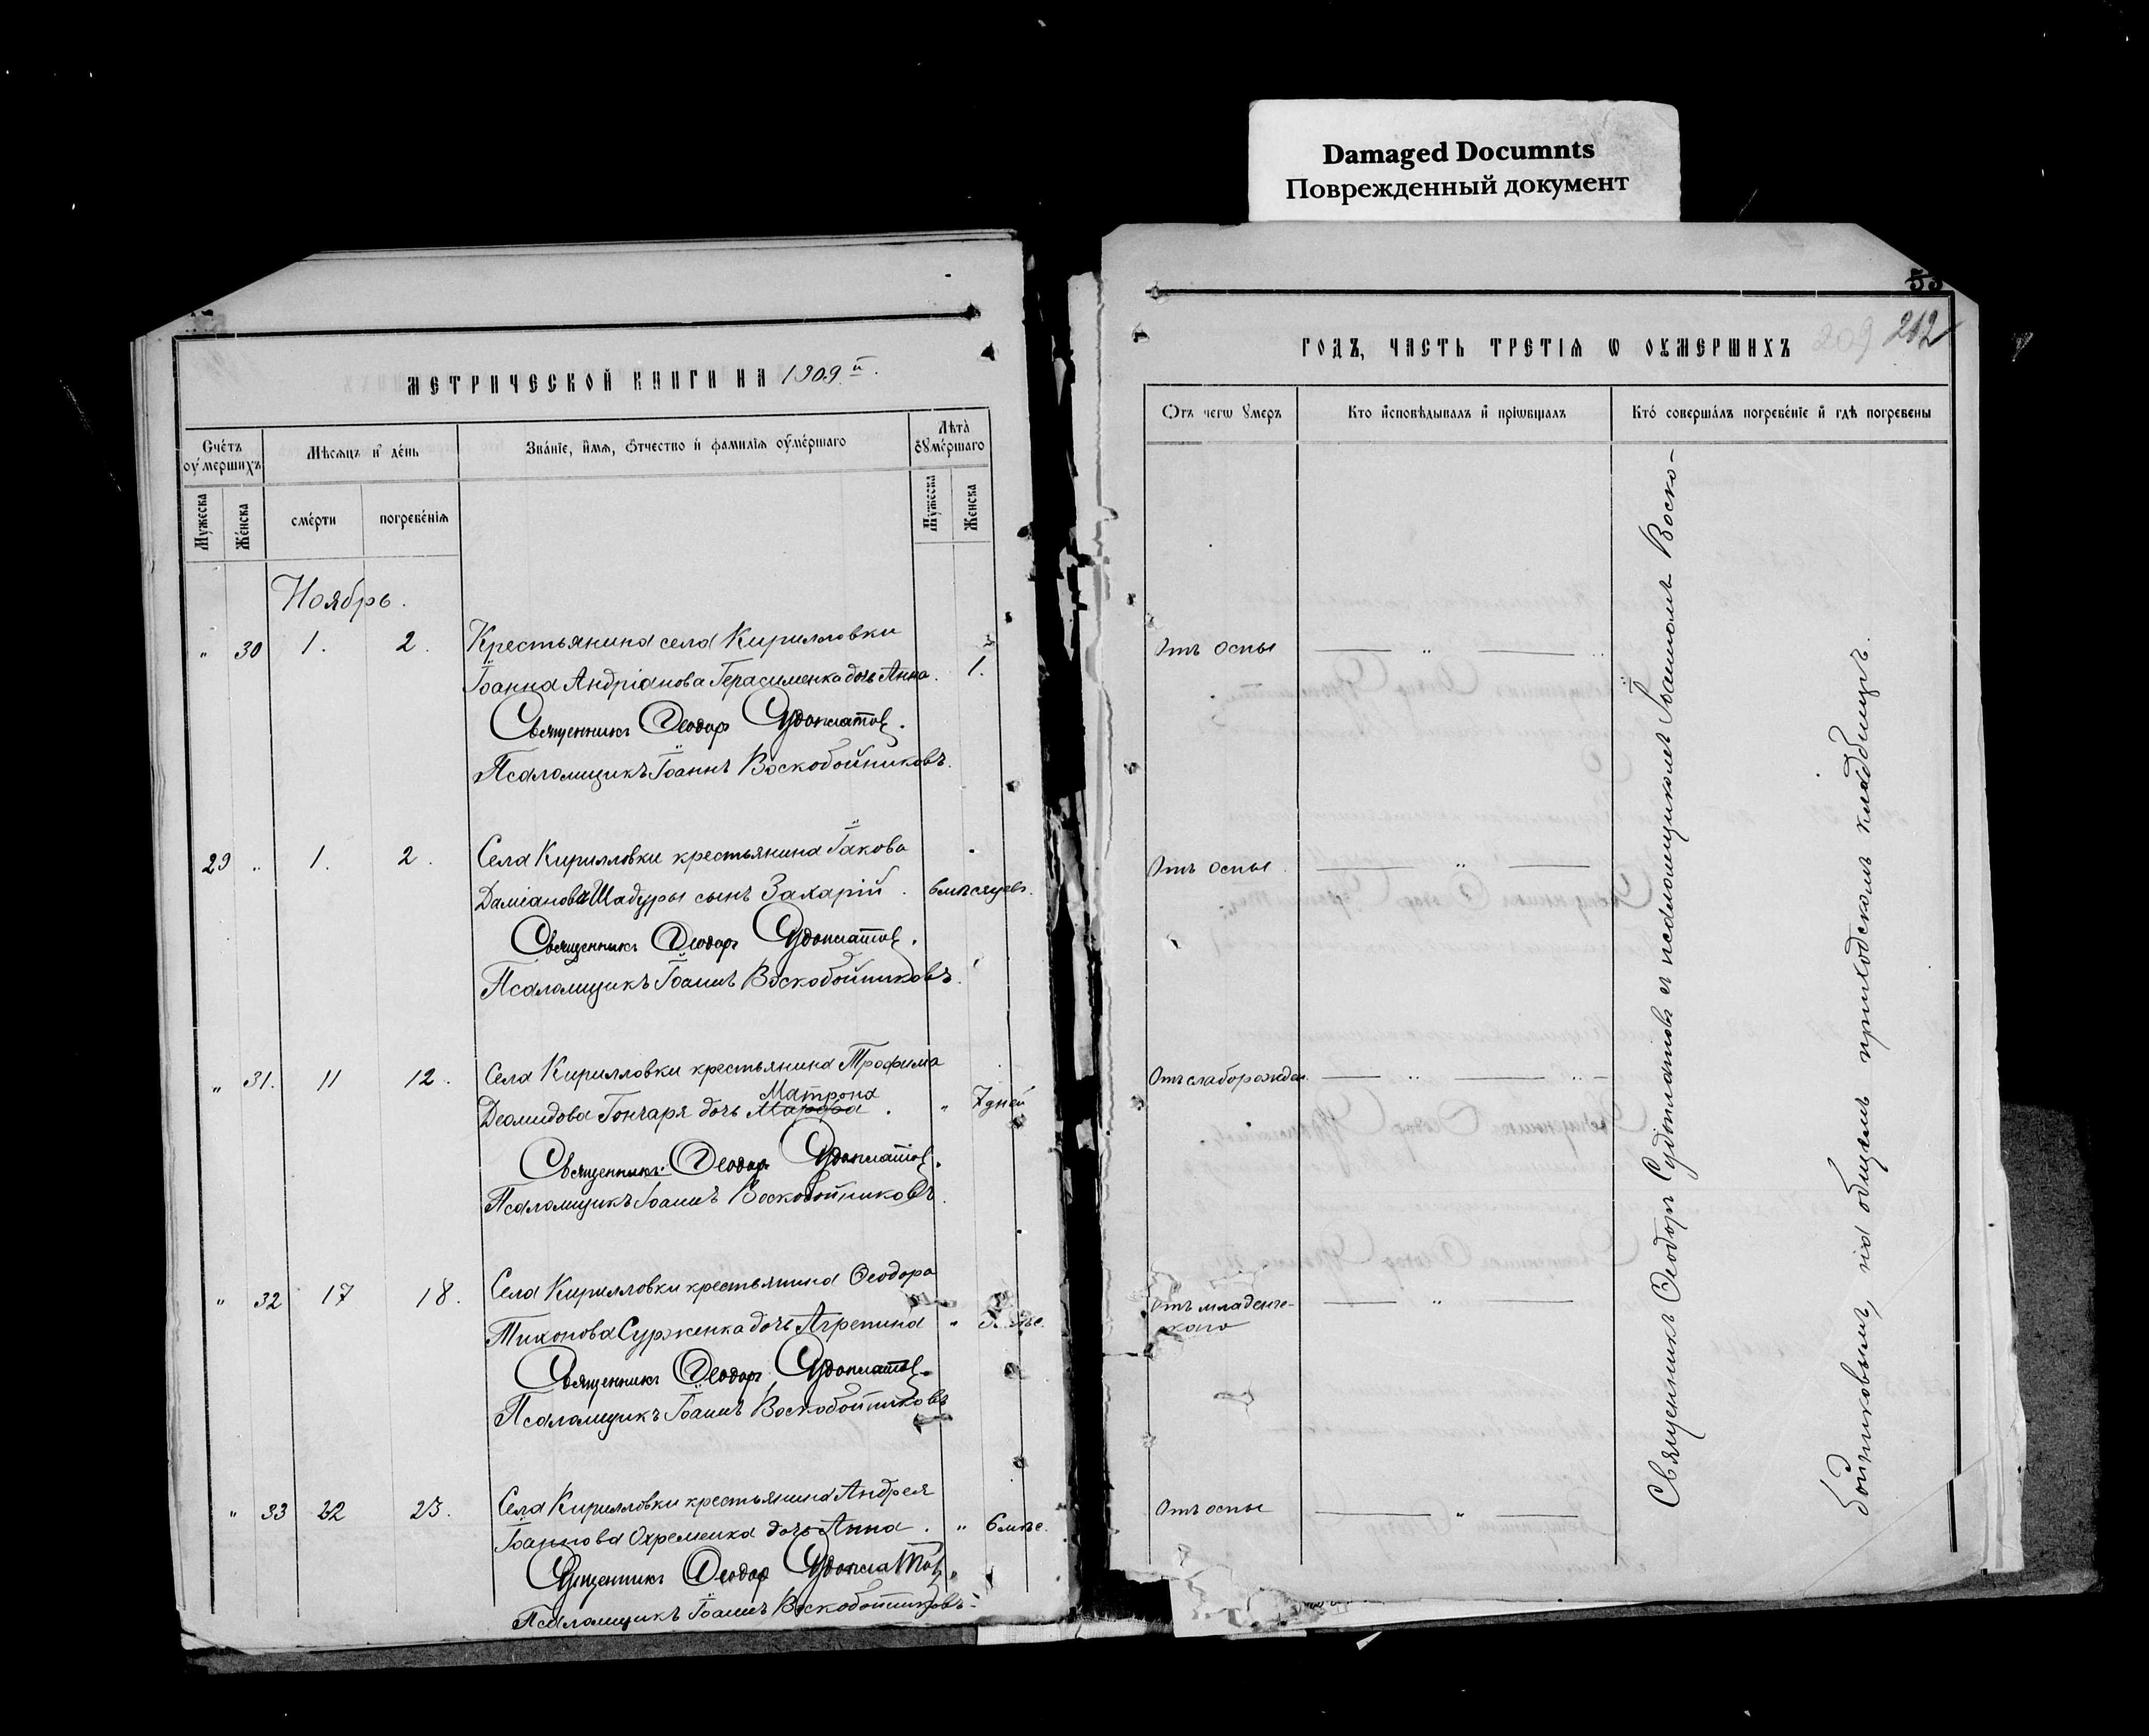 Damaged Documnts
Поврежденный документ
МЕТРИЧЕСКОЙ КНИГИ НА 1909.й
Счетъ оумершихъ
Мѣсяцъ и день
Званіе, имя, отчество и фамилія оумершаго
Лѣта оумершаго
Мужеска
Женска
смерти
погребенія
Мужеска
Женска
Ноябрь.
" 30 1. 2. Крестьянина села Кирилловки
Іоанна Андріанова Герасименка дочь Анна. 1.
Священникъ Ѳеодоръ Судоплатовъ.
Псаломщикъ Іоаннъ Воскобойниковъ.
29 " 1. 2. Села Кирилловки крестьянина Іакова
Даміанова Шадуры сынъ Захарій. 6 мѣсяцевъ.
Священникъ Ѳеодоръ Судоплатовъ.
Псаломщикъ Іоаннъ Воскобойниковъ.
" 31. 11 12. Села Кирилловки крестьянина Трофима
Матрона
Деомидова Гончаря дочь Марфа. " 7 дней
Священникъ Ѳеодоръ Судоплатовъ.
Псаломщикъ Іоаннъ Воскобойниковъ.
" 32 17 18. Села Кирилловки крестьянина Ѳеодора
Тихонова Сурженка дочь Агрепина "
Священникъ Ѳеодоръ Судоплатовъ.
Псаломщикъ Іоаннъ Воскобойниковъ
" 33 22 23. Села Кирилловки крестьянина Андрея
Іоаннова Охременка дочь Анна. " 6 мѣс.
Священникъ Ѳеодоръ Судоплатовъ.
Псаломщикъ Іоаннъ Воскобойниковъ.
53
209 212
ГОДЪ, ЧАСТЬ ТРЕТІЯ Ѡ ОУМЕРШИХЪ
Отъ чегѡ умеръ
Кто исповѣдывалъ и пріѡбщалъ
Кто совершалъ погребеніе и гдѣ погребены
Отъ оспы "
Отъ оспы "
Отъ слаборожден. "
Отъ младенче-
скаго "
Отъ оспы "
Священникъ Ѳеодоръ Судоплатовъ съ псаломщикомъ Іоанномъ Воско-
бойниковымъ, на общемъ приходскомъ кладбищѣ.